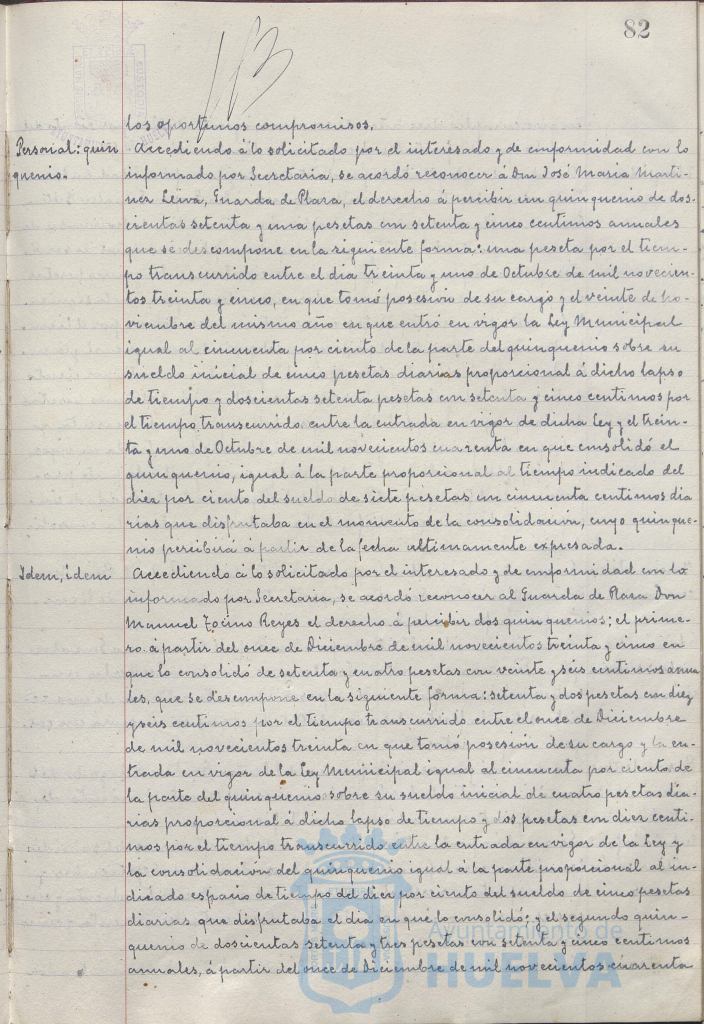 82
113
los oportunos compromisos.
Personal: quin
quenio.
Accediendo á lo solicitado por el interesado y de conformidad con lo
informado por Secretaria, se acordó reconocer á Don José Maria Marti-
nez Leiva, Guarda de Plaza, el derecho á percibir un quinquenio de dos-
cientas setenta y una pesetas con setenta y cinco centimos anuales
que se descompone en la siguiente forma: una peseta por el tiem-
po transcurrido entre el dia treinta y uno de Octubre de mil novecien-
tos treinta y cinco, en que tomó posesión de su cargo y el veinte de No-
viembre del mismo año en que entró en vigor la Ley Municipal
igual al cincuenta por ciento de la parte del quinquenio sobre su
sueldo inicial de cinco pesetas diarias proporcional á dicho lapso
de tiempo y doscientas setenta pesetas con setenta y cinco centimos por
el tiempo transcurrido entre la entrada en vigor de dicha Ley y el trein-
ta y uno de Octubre de mil novecientos cuarenta en que consolidó el
quinquenio, igual á la parte proporcional al tiempo indicado del
diez por ciento del sueldo de siete pesetas con cincuenta centimos dia
rias que disfrutaba en el momento de la consolidación, cuyo quinque-
nio percibirá á partir de la fecha ultimamente expresada.
Idem, idem
Accediendo á lo solicitado por el interesado y de conformidad con lo
informado por Secretaria, se acordó reconocer al Guarda de Plaza Don
Manuel Tocino Reyes el derecho á percibir dos quinquenios; el prime-
ro á partir del once de Diciembre de mil novecientos treinta y cinco en
que lo consolidó de setenta y cuatro pesetas con veinte y seis centimos anua
les, que se descompone en la siguiente forma: setenta y dos pesetas con diez
y seis centimos por el tiempo transcurrido entre el once de Diciembre
de mil novecientos treinta en que tomó posesión de su cargo y la en-
trada en vigor de la Ley Municipal igual al cincuenta por ciento de
la parte del quinquenio sobre su sueldo inicial de cuatro pesetas dia-
rias proporcional á dicho lapso de tiempo y dos pesetas con diez centi-
mos por el tiempo transcurrido entre la entrada en vigor de la Ley y
la consolidación del quinquenio igual á la parte proporcional al in-
dicado espacio de tiempo del diez por ciento del sueldo de cinco pesetas
diarias que disfrutaba el dia en que lo consolidó; y el segundo quin-
quenio de doscientas setenta y tres pesetas con setenta y cinco centimos
anuales, á partir del once de Diciembre de mil novecientos cuarenta
Ayuntamiento de
HUELVA